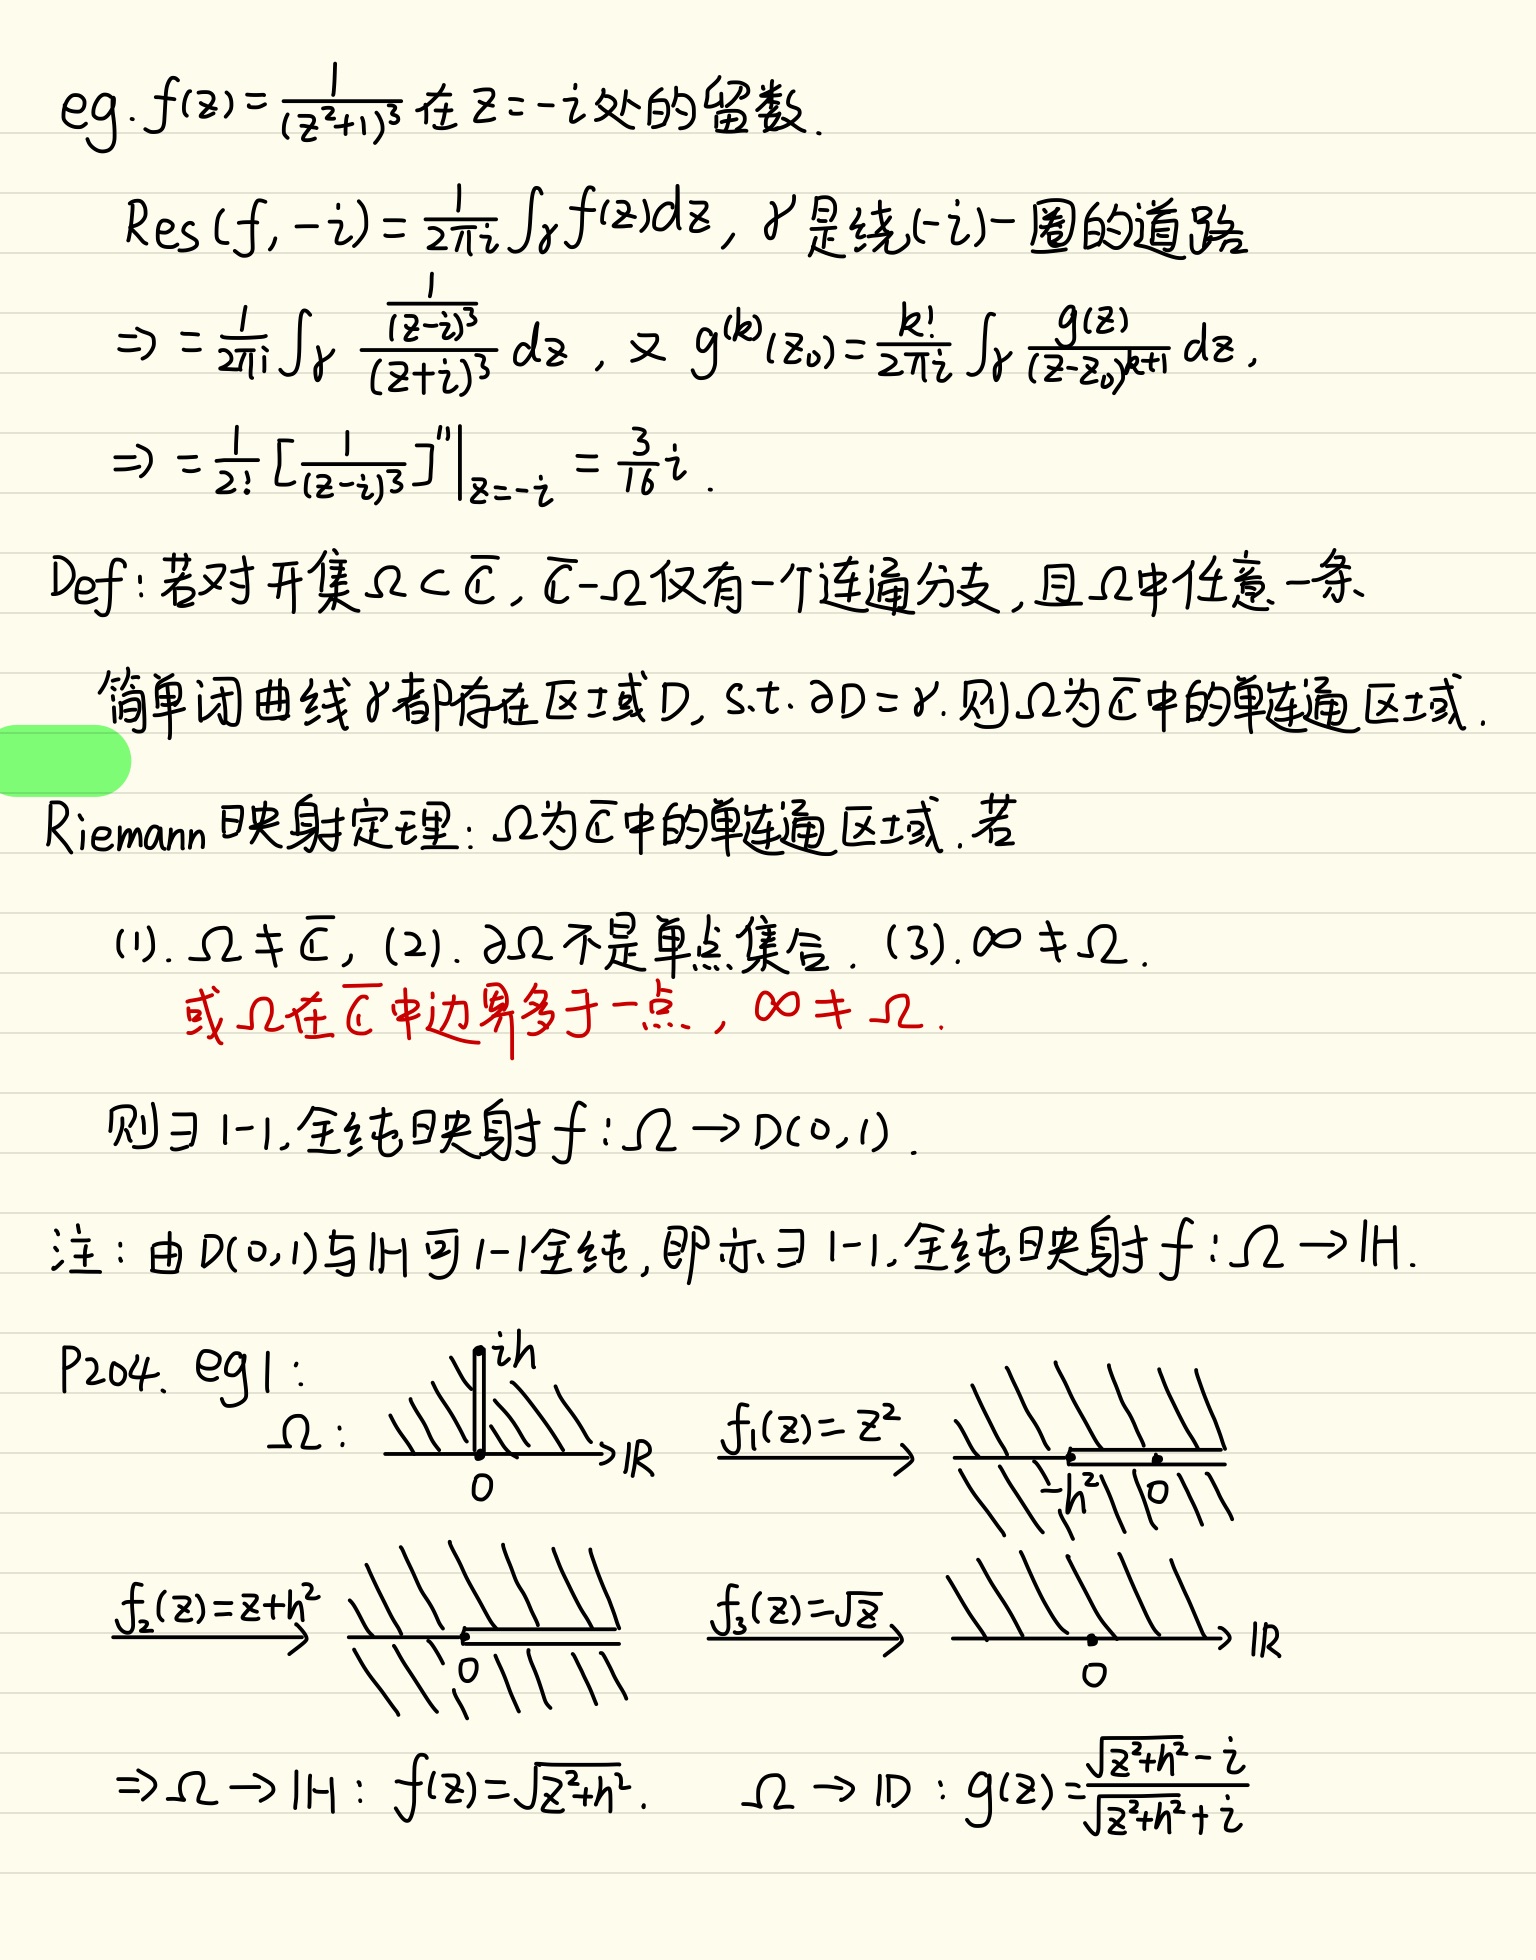 eg. f(z) = 1/(z²+1)³ 在 z = -i 处的留数.
Res(f, -i) = 1/2πi ∫_γ f(z)dz, γ 是绕(-i)一圈的道路
⇒ = 1/2πi ∫_γ (1/(z-i)³)/(z+i)³ dz , 又 g^(k)(z₀) = k!/2πi ∫_γ g(z)/(z-z₀)^(k+1) dz,
⇒ = 1/2! [1/(z-i)³]''|_(z=-i) = 3/16 i .
Def: 若对开集 Ω ⊂ C̅, C̅-Ω 仅有一个连通分支, 且 Ω 中任意一条
简单闭曲线 γ 都存在区域 D, s.t. ∂D = γ. 则 Ω 为 C̅ 中的单连通区域.
Riemann 映射定理: Ω 为 C̅ 中的单连通区域. 若
(1). Ω ≠ C̅, (2). ∂Ω 不是单点集合. (3). ∞ ≠ Ω.
或 Ω 在 C̅ 中边界多于一点, ∞ ≠ Ω.
则 ∃ 1-1, 全纯映射 f: Ω → D(0,1).
注: 由 D(0,1) 与 ℍ 可 1-1 全纯, 即亦 ∃ 1-1, 全纯映射 f: Ω → ℍ.
P204. eg1:
Ω: ih 0 ℝ f₁(z) = z² -h² 0
f₂(z) = z+h² 0 f₃(z) = √z 0 ℝ
⇒ Ω → ℍ: f(z) = √(z²+h²). Ω → 𝔻: g(z) = (√(z²+h²) - i)/(√(z²+h²) + i)